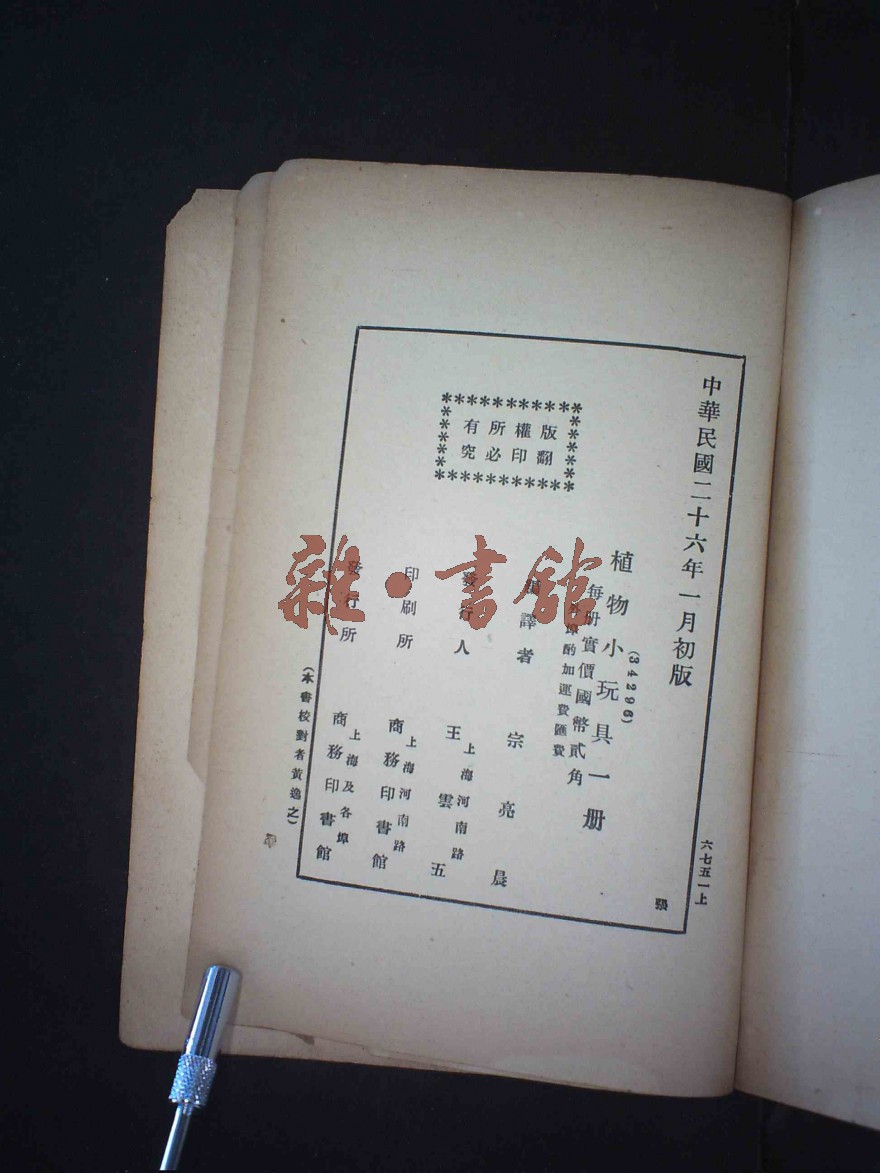 中華民國二十六年一月初版
六七五一上
張
植物小玩具一册
(34296)
每册實價國幣貳角
外埠酌加運費匯費
版權所有
翻印必究
編譯者 宗亮晨
發行人 王雲五
上海河南路
印刷所 商務印書館
上海河南路
發行所 商務印書館
上海及各埠
(本書校對者黃逸之)
雜·書館